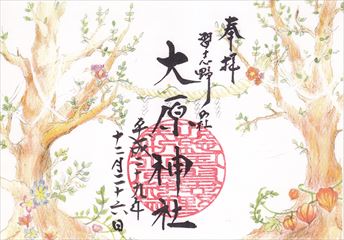 奉拝
習志野の社
大原神社
平成二十九年
十二月二十六日